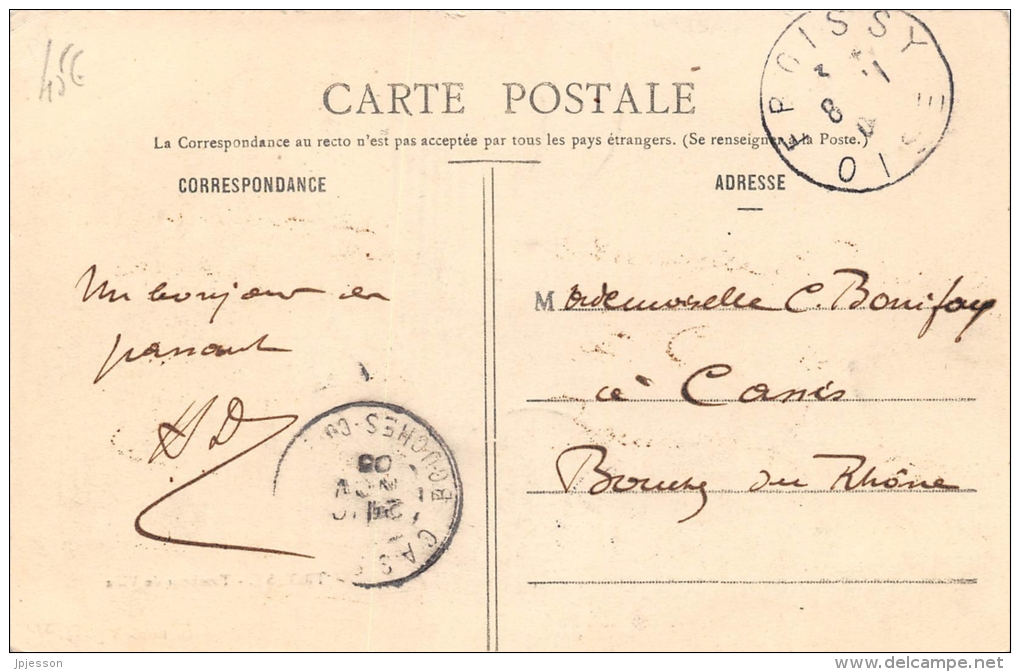 45€
CARTE POSTALE
La Correspondance au recto n'est pas acceptée par tous les pays étrangers. (Se renseigner à la Poste.)
CORRESPONDANCE
ADRESSE
EPOISSY
OISE
Un bonjour en
passant
HD
Mademoiselle C. Bonifay
à Cassis
Bouches du Rhône
BOUCHES-DU
CAS
24
NOV
05
jpjesson
www.delcampe.net